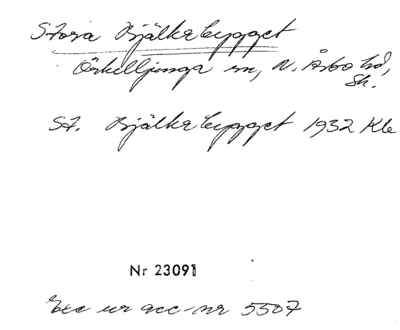 Stora Bjälkabygget
Örkelljunga sn, N. Åsbo hd,
Sk.
St. Bjälkabygget 1932 Kle
Nr 23091
Exc ur acc-nr 5507